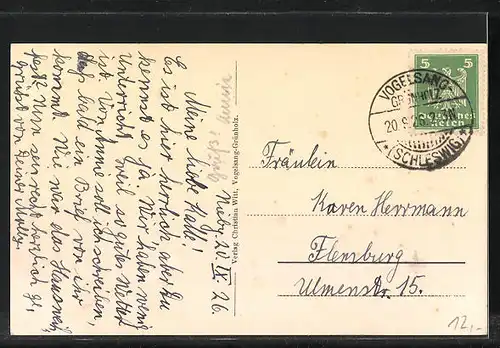 Nieby 20.IX.26.
Meine liebe Kalle!
Es ist hier herrlich aber du
kennst es ja. Wir haben wenig
Unterricht weil so gutes Wetter
ist. Von Anne soll ich schreiben,
daß bald ein Brief von ihr
kommt. Wie war das
Nun sei recht herzlich ge-
grüßt von Deiner
Verlag Christian Witt, Vogelsang-Grünholz.
VOGELSANG-
GRÜNHOLZ
20.9.26
*(SCHLESWIG)*
5 5
Deutsches
Reich
Fräulein
Karen Herrmann
Flensburg
Ulmenstr. 15.
12,-